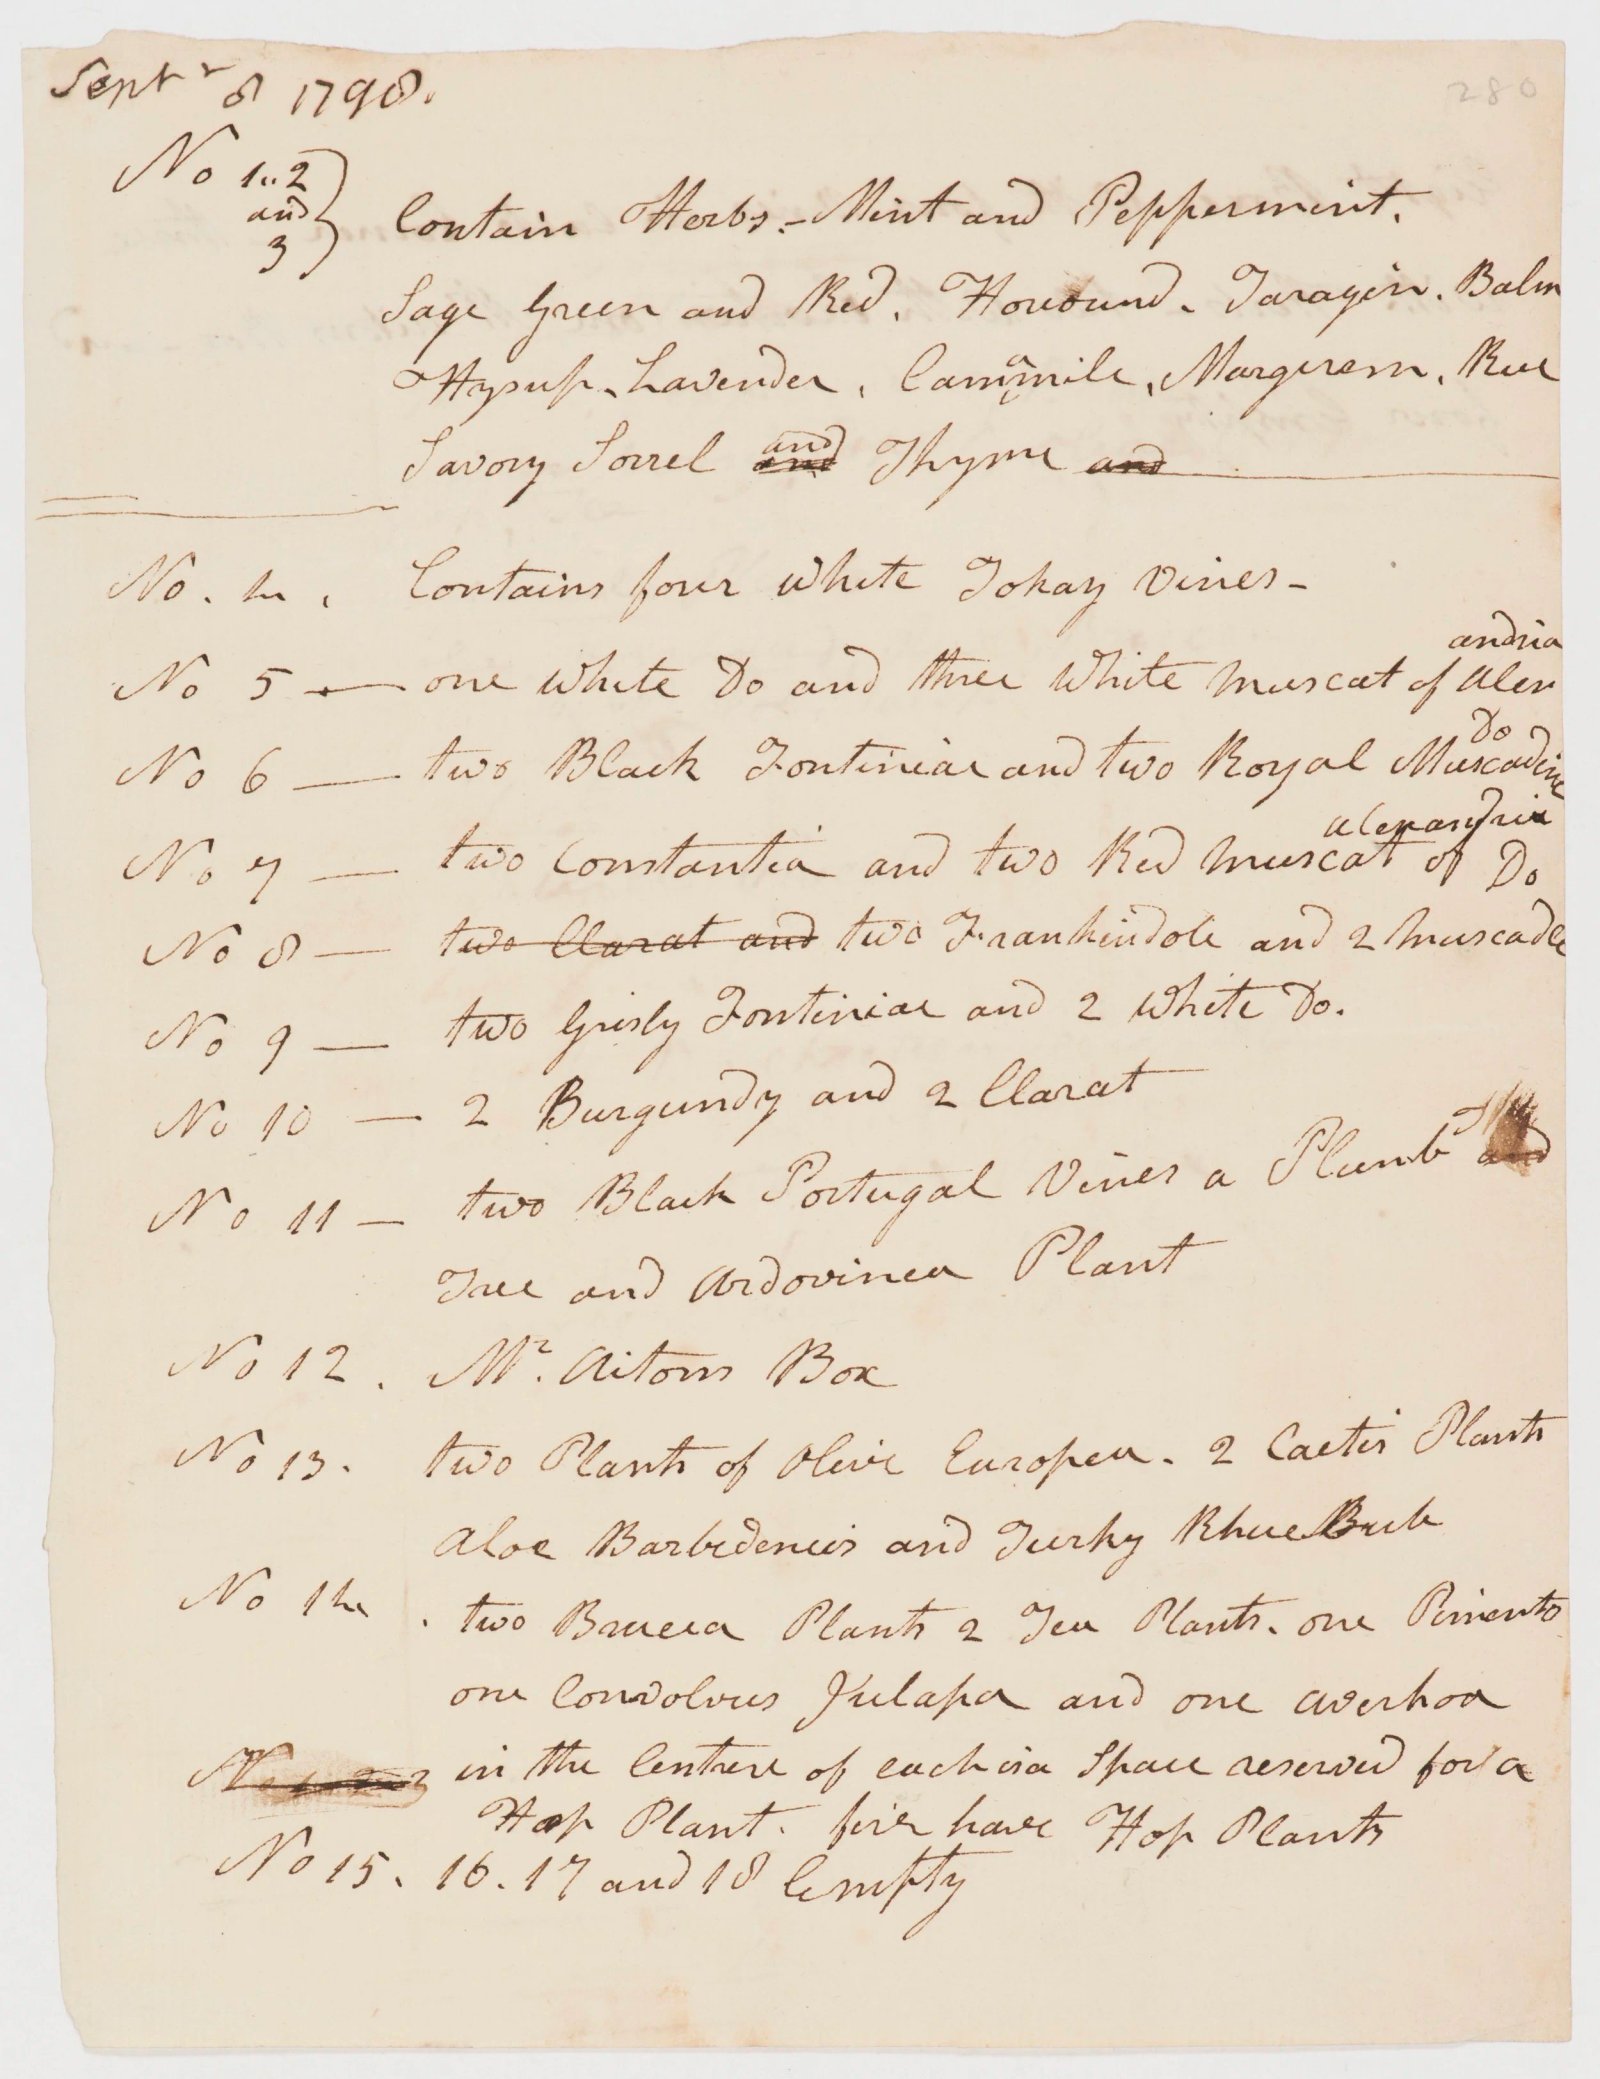 Septr 8 1798.
280
No 1..2
and
3
Contain Herbs.- Mint and Peppermint.
Sage Green and Red. Horound. Taragin. Balm
Hysup. Lavender, Cammile, Margerem, Rue
Savory Sorrel and and Thyme and
No. 4. Contains four white Tokay Vines-
andria
No 5 — one White Do and three White Muscat of Alex
Do
No 6 — two Black Fontiniac and two Royal Muscadine
Alexandria
No 7 — two Constantia and two Red Muscat of Do
No 8 — two Clarat and two Frankindole and 2 Muscadle
No 9 — two Grisly Fontiniac and 2 White Do.
No 10 — 2 Burgundy and 2 Clarat
No 11 — two Black Portugal Vines a Plumb and
Tree and Ardovinea Plant
No 12. Mr. Aitons Box
No 13. two Plants of Olive Europea. 2 Cactis Plants
Aloe Barbedencis and Turky Rhue Bub
No 14. two Brucea Plants 2 Tea Plants. one Pimento
one Convolvus Julapa and one averhoa
No
in the Centure of each is a Space reserved for a
Hop Plant. five have Hop Plants
No 15. 16. 17 and 18 Empty